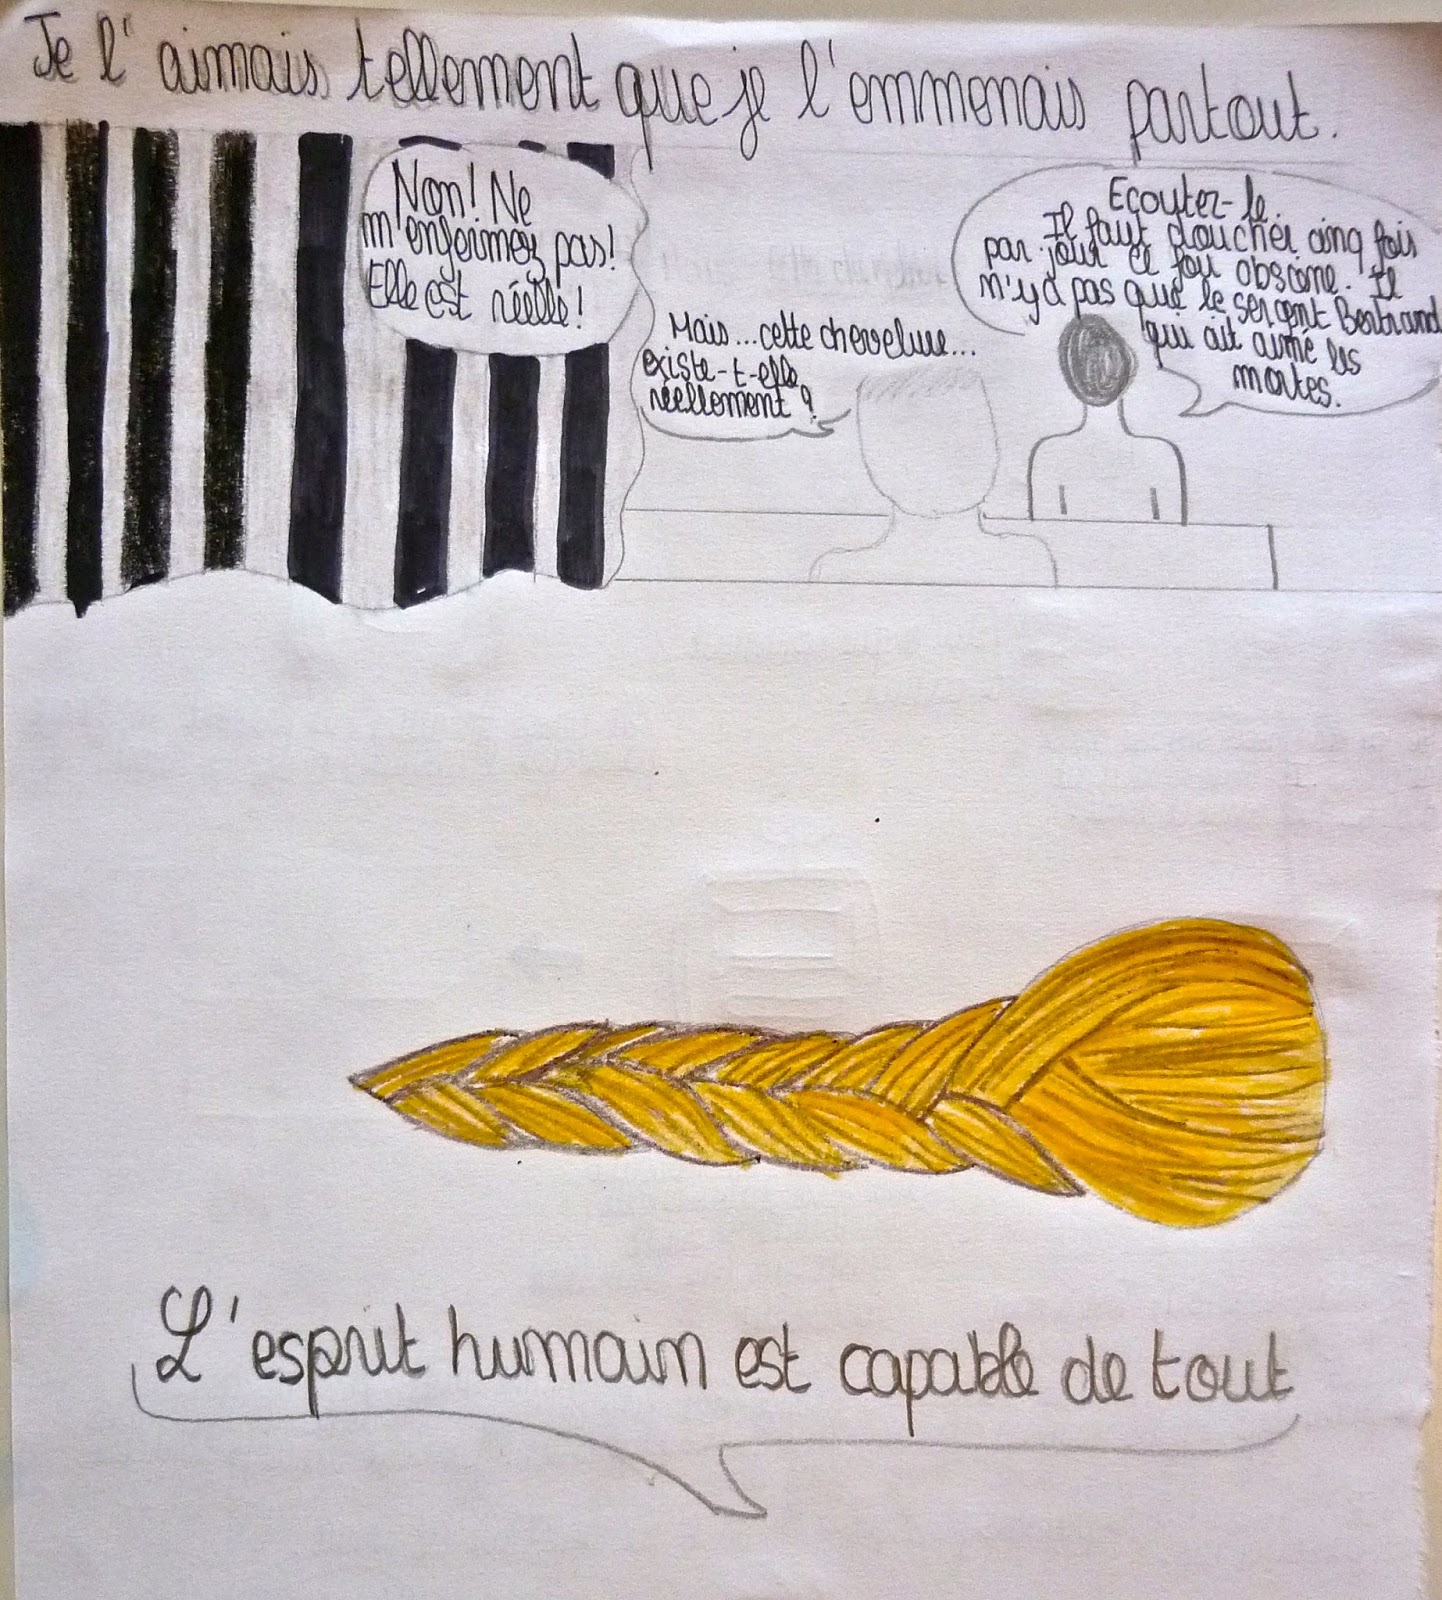 Je l'aimais tellement que je l'emmenais partout.
Non! Ne
m'enfermez pas!
Elle est réelle!
Mais...cette chevelure...
existe-t-elle
réellement ?
Ecoutez-le.
Il faut doucher cinq fois
par jour ce fou obscène. Il
n'y a pas que le sergent Bertrand
qui ait aimé les
mortes.
L'esprit humain est capable de tout